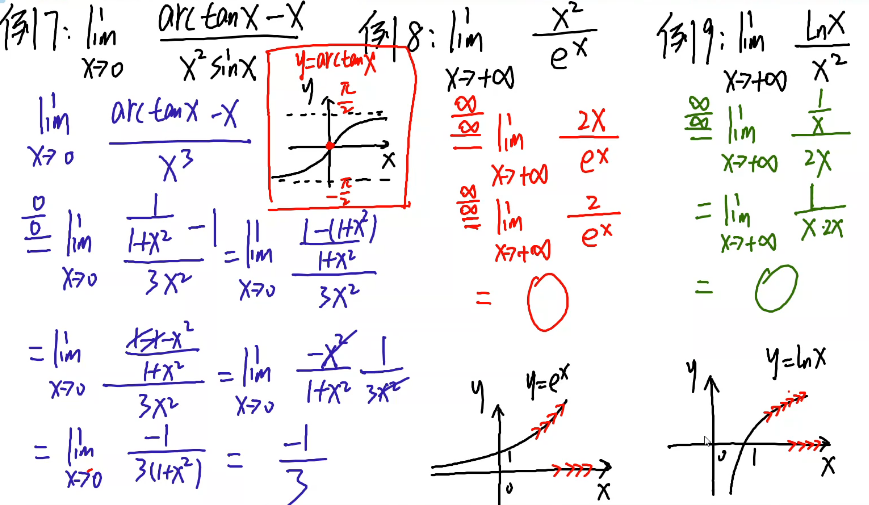 例17: lim x→0 (arctanx-x)/(x² sinx)
lim x→0 (arctanx-x)/x³
0/0 = lim x→0 (1/(1+x²) - 1)/(3x²) = lim x→0 ((1-(1+x²))/(1+x²))/(3x²)
= lim x→0 ((1-1-x²)/(1+x²))/(3x²) = lim x→0 (-x²)/(1+x²) 1/(3x²)
= lim x→0 (-1)/(3(1+x²)) = (-1)/3
y=arctanx
y
π/2
x
-π/2
例18: lim x→+∞ x²/eˣ
∞/∞ = lim x→+∞ 2x/eˣ
∞/∞ = lim x→+∞ 2/eˣ
= 0
y y=eˣ
1
0 x
例19: lim x→+∞ Lnx/x²
∞/∞ = lim x→+∞ (1/x)/(2x)
= lim x→+∞ 1/(x·2x)
= 0
y y=lnx
0 1 x